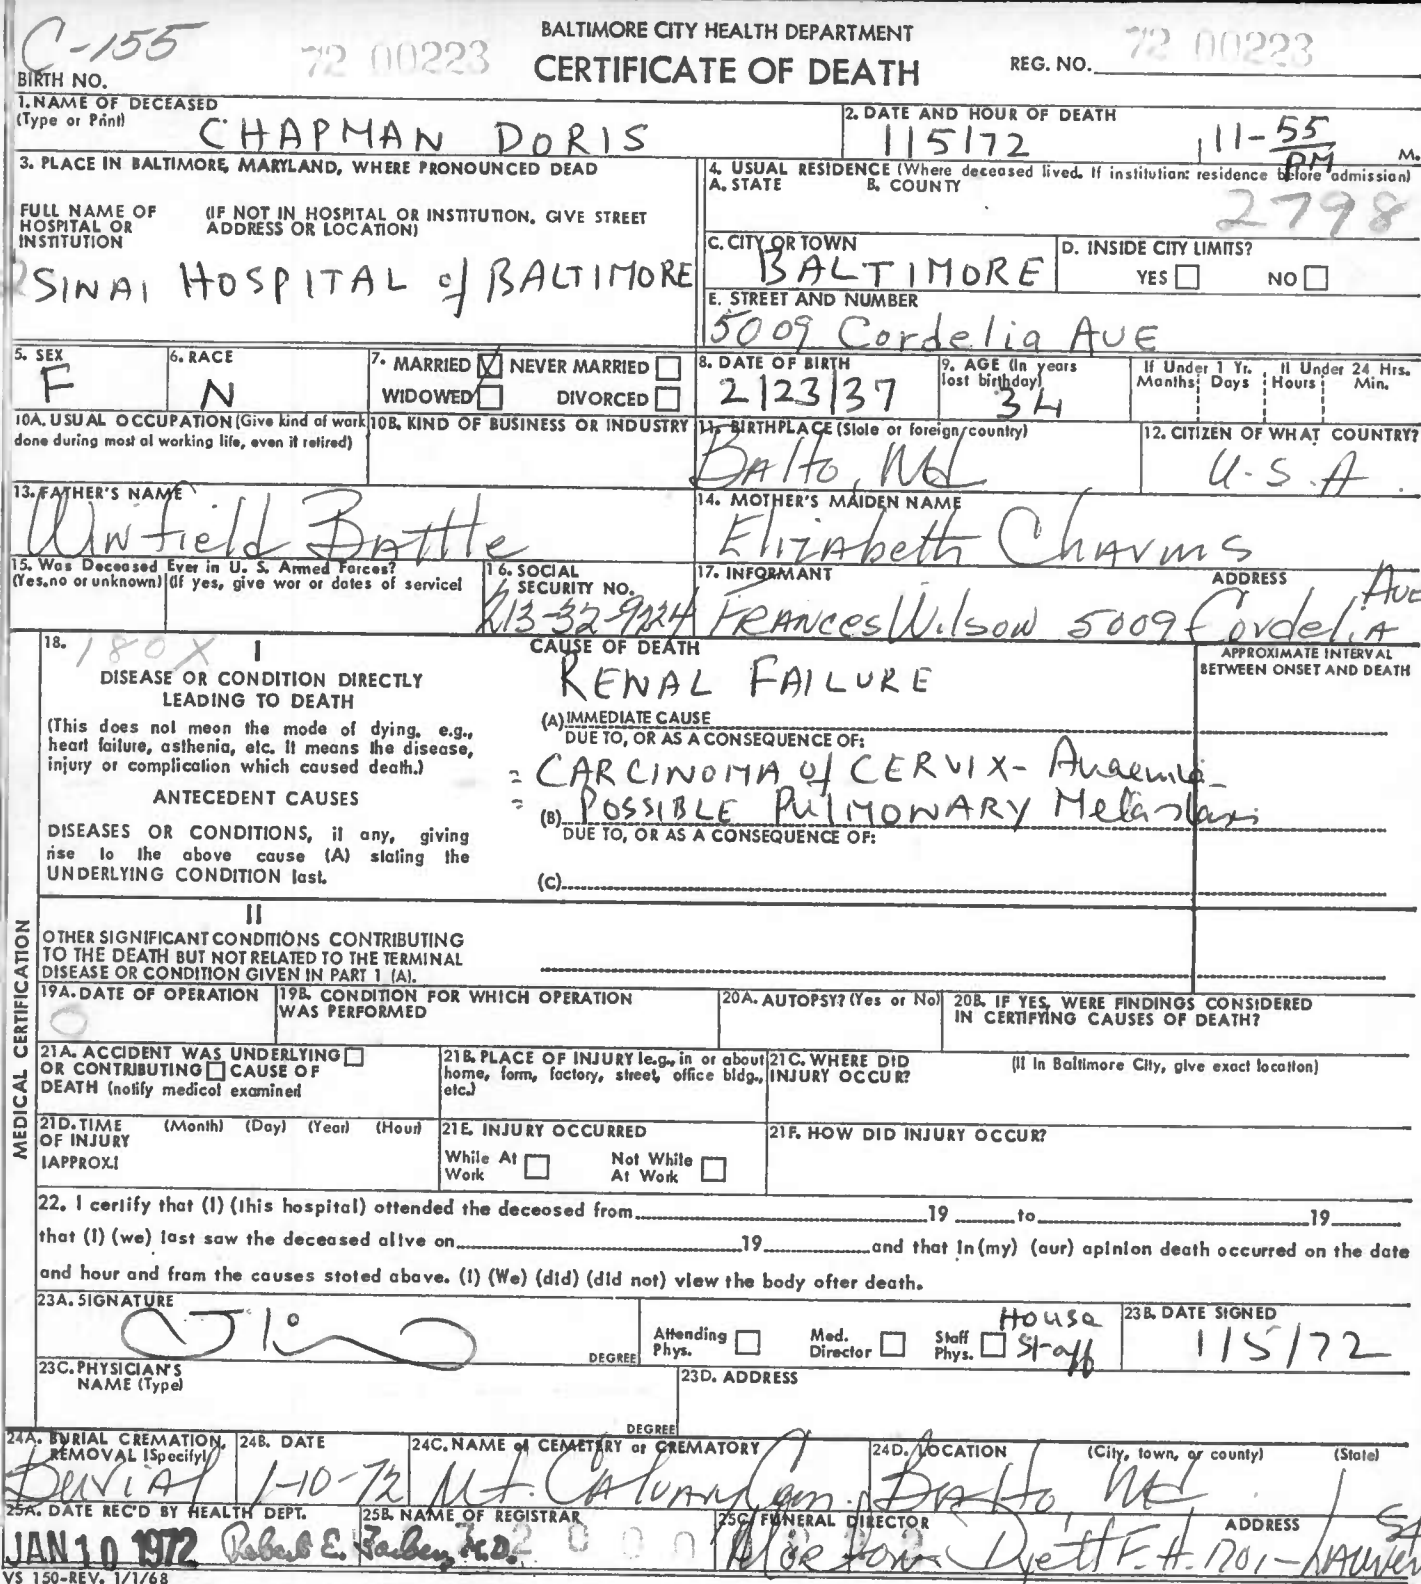 C-155
72 00223
BALTIMORE CITY HEALTH DEPARTMENT
CERTIFICATE OF DEATH
72 00223
REG. NO.
BIRTH NO.
1. NAME OF DECEASED
(Type or Print)
CHAPMAN DORIS
2. DATE AND HOUR OF DEATH
1/5/72 11-55 PM M.
3. PLACE IN BALTIMORE, MARYLAND, WHERE PRONOUNCED DEAD
FULL NAME OF HOSPITAL OR INSTITUTION
(IF NOT IN HOSPITAL OR INSTITUTION, GIVE STREET ADDRESS OR LOCATION)
SINAI HOSPITAL of BALTIMORE
4. USUAL RESIDENCE (Where deceased lived. If institution: residence before admission)
A. STATE B. COUNTY
2798
C. CITY OR TOWN
BALTIMORE
D. INSIDE CITY LIMITS?
YES NO
E. STREET AND NUMBER
5009 Cordelia AVE
5. SEX
F
6. RACE
N
7. MARRIED NEVER MARRIED
WIDOWED DIVORCED
8. DATE OF BIRTH
2/23/37
9. AGE (In years last birthday)
34
If Under 1 Yr. If Under 24 Hrs.
Months Days Hours Min.
10A. USUAL OCCUPATION (Give kind of work done during most of working life, even if retired)
10B. KIND OF BUSINESS OR INDUSTRY
11. BIRTHPLACE (State or foreign country)
Balto, Md
12. CITIZEN OF WHAT COUNTRY?
U.S.A.
13. FATHER'S NAME
Winfield Battle
14. MOTHER'S MAIDEN NAME
Elizabeth
15. Was Deceased Ever in U. S. Armed Forces?
(Yes, no or unknown) (If yes, give war or dates of service)
16. SOCIAL SECURITY NO.
213-32-9224
17. INFORMANT ADDRESS
Frances Wilson 5009 Cordelia Ave
MEDICAL CERTIFICATION
18.
180X
I
DISEASE OR CONDITION DIRECTLY
LEADING TO DEATH
(This does not mean the mode of dying, e.g.,
heart failure, asthenia, etc. It means the disease,
injury or complication which caused death.)
ANTECEDENT CAUSES
DISEASES OR CONDITIONS, if any, giving
rise to the above cause (A) stating the
UNDERLYING CONDITION last.
CAUSE OF DEATH
RENAL FAILURE
(A) IMMEDIATE CAUSE
DUE TO, OR AS A CONSEQUENCE OF:
= CARCINOMA of CERVIX - Anaemia -
= (B) POSSIBLE PULMONARY Metastasis
DUE TO, OR AS A CONSEQUENCE OF:
(C)
APPROXIMATE INTERVAL
BETWEEN ONSET AND DEATH
II
OTHER SIGNIFICANT CONDITIONS CONTRIBUTING
TO THE DEATH BUT NOT RELATED TO THE TERMINAL
DISEASE OR CONDITION GIVEN IN PART 1 (A).
19A. DATE OF OPERATION
0
19B. CONDITION FOR WHICH OPERATION WAS PERFORMED
20A. AUTOPSY? (Yes or No)
20B. IF YES, WERE FINDINGS CONSIDERED IN CERTIFYING CAUSES OF DEATH?
21A. ACCIDENT WAS UNDERLYING
OR CONTRIBUTING CAUSE OF
DEATH (notify medical examiner)
21B. PLACE OF INJURY (e.g., in or about home, farm, factory, street, office bldg., etc.)
21C. WHERE DID INJURY OCCUR?
(If in Baltimore City, give exact location)
21D. TIME OF INJURY (APPROX.)
(Month) (Day) (Year) (Hour)
21E. INJURY OCCURRED
While At Work Not While At Work
21F. HOW DID INJURY OCCUR?
22. I certify that (I) (this hospital) attended the deceased from 19 to 19
that (I) (we) last saw the deceased alive on 19 and that in (my) (our) opinion death occurred on the date
and hour and from the causes stated above. (I) (We) (did) (did not) view the body after death.
23A. SIGNATURE
DEGREE
Attending Phys. Med. Director Staff Phys. House Staff
23B. DATE SIGNED
1/5/72
23C. PHYSICIAN'S NAME (Type)
DEGREE
23D. ADDRESS
24A. BURIAL CREMATION, REMOVAL (Specify)
Burial
24B. DATE
1-10-72
24C. NAME of CEMETERY or CREMATORY
Mt. Calvary Cem.
24D. LOCATION (City, town, or county) (State)
Balto, Md.
25A. DATE REC'D BY HEALTH DEPT.
JAN 10 1972
25B. NAME OF REGISTRAR
Robert E. Farber, M.D.
25C. FUNERAL DIRECTOR ADDRESS
Morton Dyett F.H. 1701 Laurens St
VS 150-REV. 1/1/68